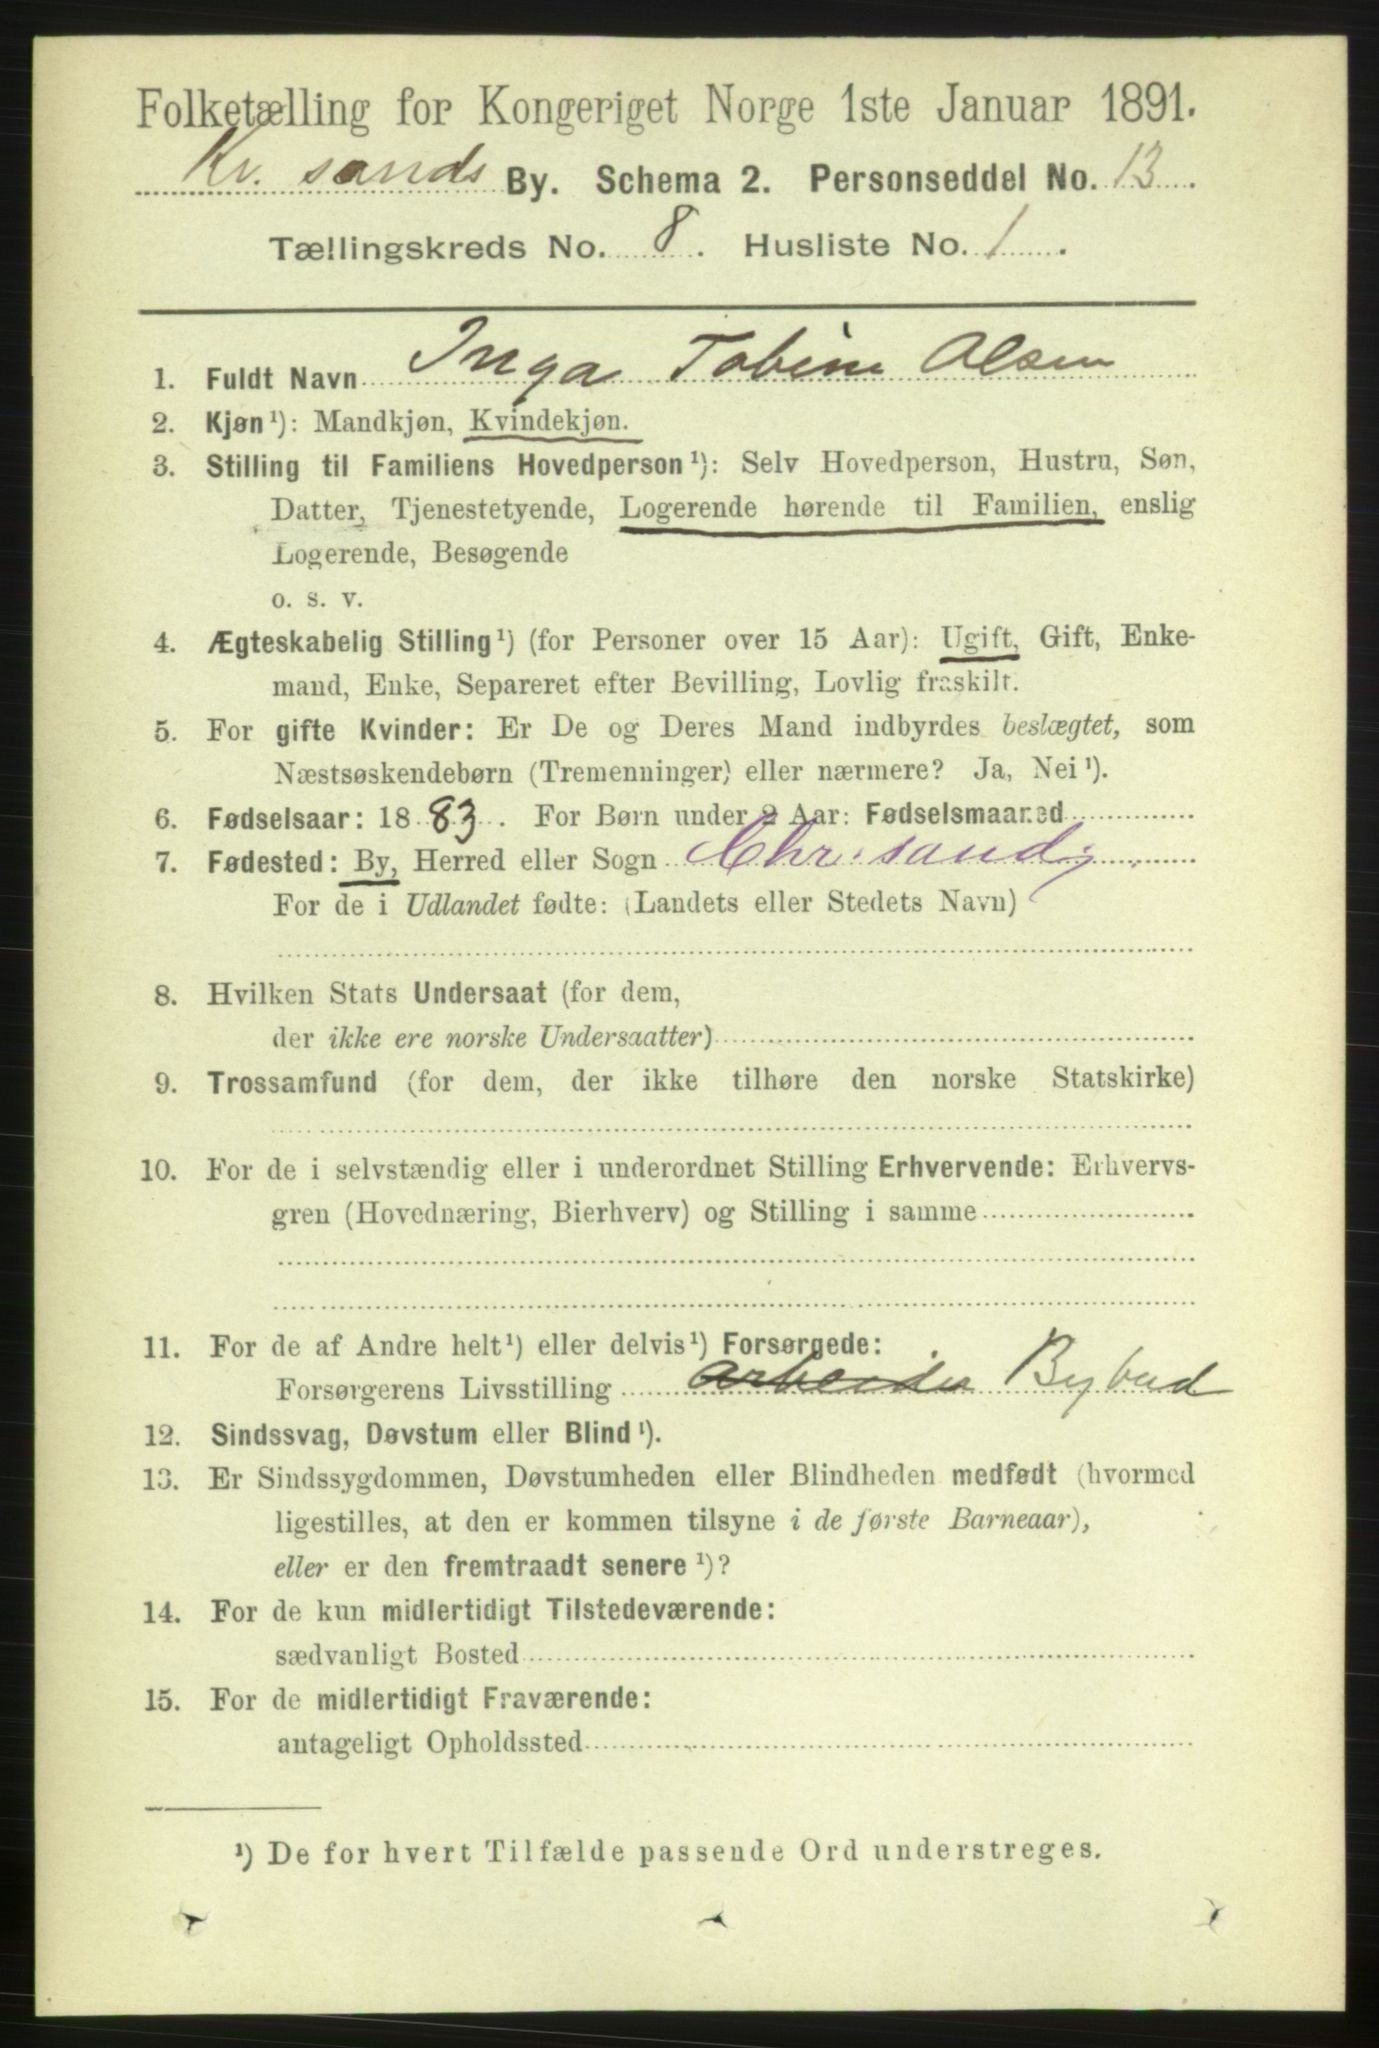 Folketælling for Kongeriget Norge 1ste Januar 1891.
Kr. sands By. Schema 2. Personseddel No. 13.
Tællingskreds No. 8. Husliste No. 1.
1. Fuldt Navn Inga Tobine Olsen
2. Kjøn¹): Mandkjøn, Kvindekjøn.
3. Stilling til Familiens Hovedperson¹): Selv Hovedperson, Hustru, Søn,
Datter, Tjenestetyende, Logerende hørende til Familien, enslig
Logerende, Besøgende
o. s. v.
4. Ægteskabelig Stilling¹) (for Personer over 15 Aar): Ugift, Gift, Enke-
mand, Enke, Separeret efter Bevilling, Lovlig fraskilt.
5. For gifte Kvinder: Er De og Deres Mand indbyrdes beslægtet, som
Næstsøskendebørn (Tremenninger) eller nærmere? Ja, Nei¹).
6. Fødselsaar: 1883. For Børn under 2 Aar: Fødselsmaaned
7. Fødested: By, Herred eller Sogn Chr.sand
For de i Udlandet fødte: (Landets eller Stedets Navn)
8. Hvilken Stats Undersaat (for dem,
der ikke ere norske Undersaatter)
9. Trossamfund (for dem, der ikke tilhøre den norske Statskirke)
10. For de i selvstændig eller i underordnet Stilling Erhvervende: Erhvervs-
gren (Hovednæring, Bierhverv) og Stilling i samme
11. For de af Andre helt¹) eller delvis¹) Forsørgede:
Forsørgerens Livsstilling arbeider Bybud
12. Sindssvag, Døvstum eller Blind¹).
13. Er Sindssygdommen, Døvstumheden eller Blindheden medfødt (hvormed
ligestilles, at den er kommen tilsyne i de første Barneaar),
eller er den fremtraadt senere¹)?
14. For de kun midlertidigt Tilstedeværende:
sædvanligt Bosted
15. For de midlertidigt Fraværende:
antageligt Opholdssted
¹) De for hvert Tilfælde passende Ord understreges.